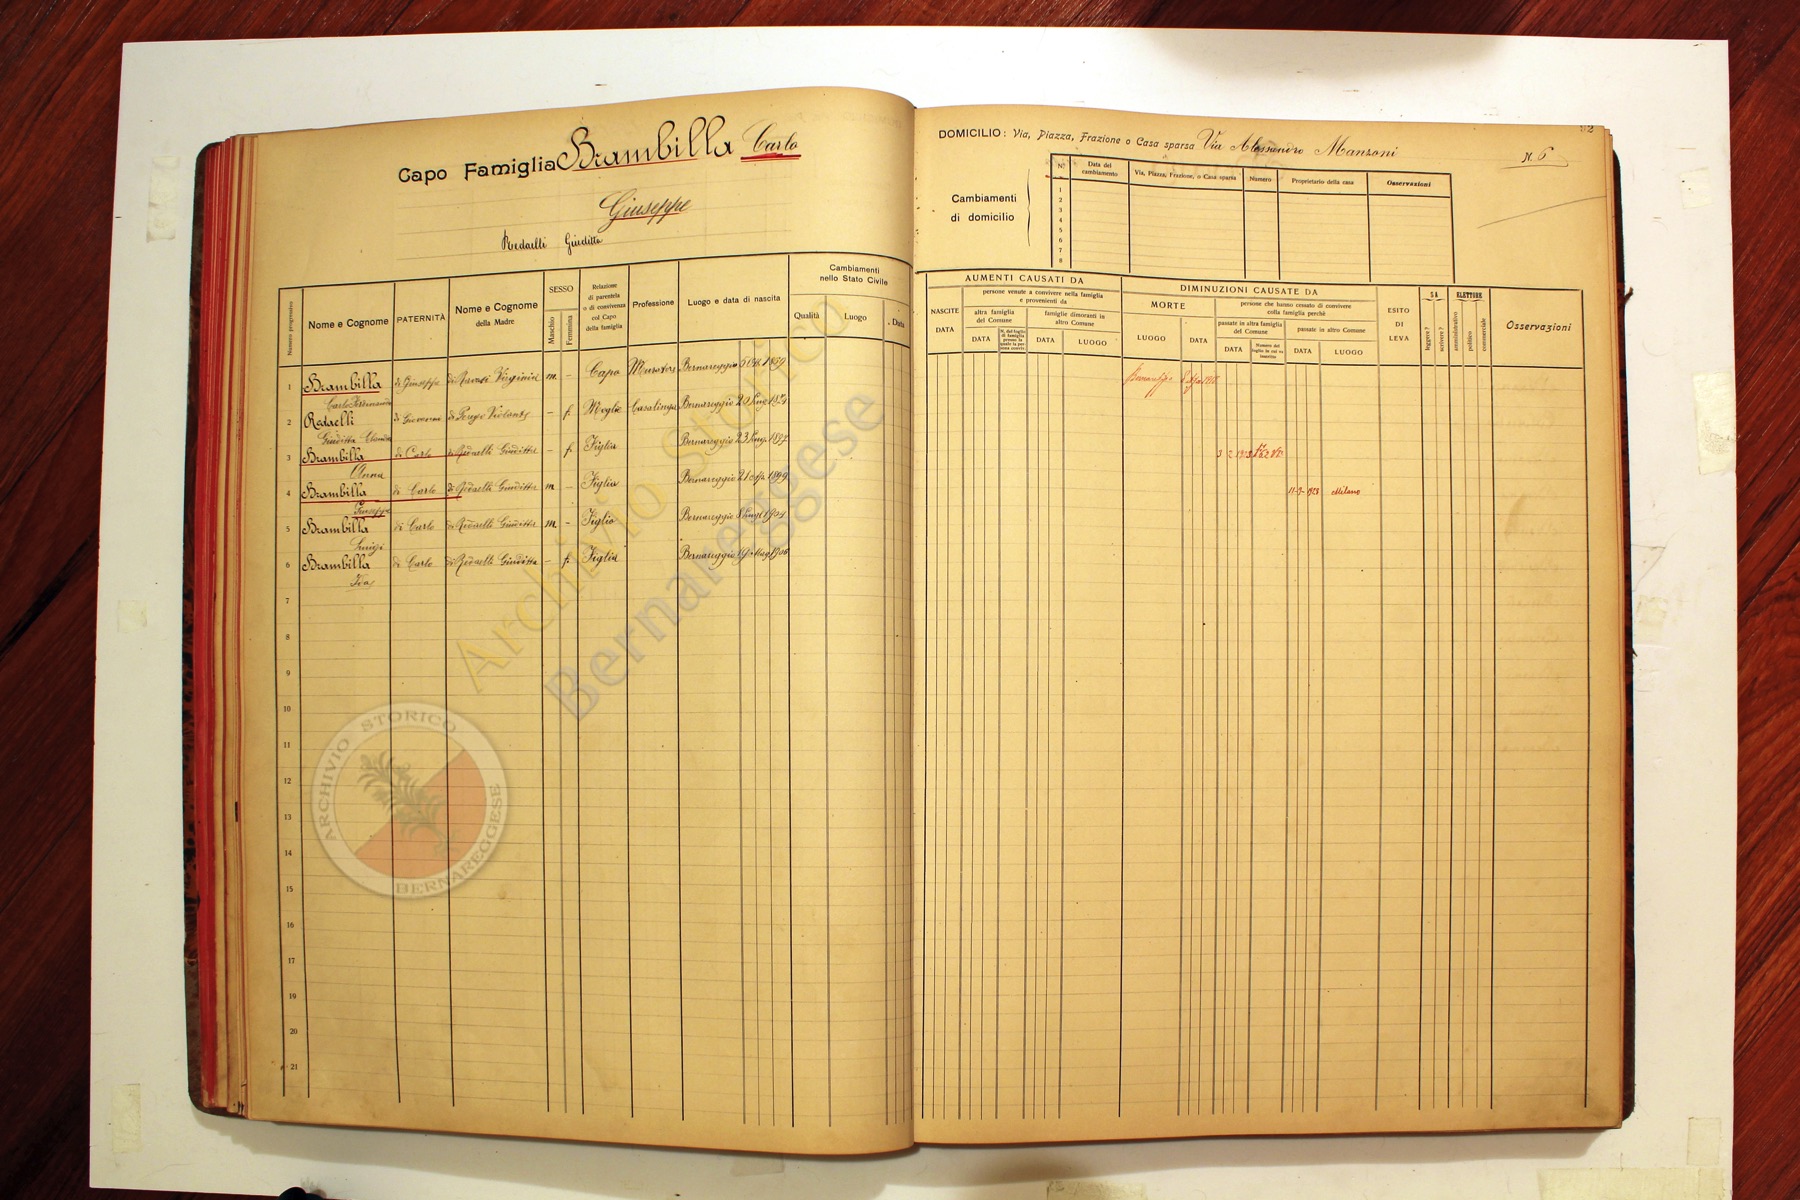 Capo Famiglia Brambilla Carlo
Giuseppe
Redaelli Giuditta
Numero progressivo
Nome e Cognome
PATERNITÀ
Nome e Cognome
della Madre
SESSO
Maschio
Femmina
Relazione
di parentela
o di convivenza
col Capo
della famiglia
Professione
Luogo e data di nascita
Cambiamenti
nello Stato Civile
Qualità
Luogo
Data
1 Brambilla di Giuseppe di Ravasi Virginia m. - Capo Muratore Bernareggio 1859
Carlo
2 Redaelli di Giovanni di Perego Violante - f. Moglie Casalinga Bernareggio 20
Giuditta
3 Brambilla di Carlo di Redaelli Giuditta - f. Figlia Bernareggio 23 1897
Anna
4 Brambilla di Carlo di Redaelli Giuditta m - Figlio Bernareggio 21 1899
Giuseppe
5 Brambilla di Carlo di Redaelli Giuditta m - Figlio Bernareggio 8 1904
Luigi
6 Brambilla di Carlo di Redaelli Giuditta - f. Figlia Bernareggio 19 Mag. 1906
Ida
7
8
9
10
11
12
13
14
15
16
17
18
19
20
21
92
DOMICILIO: Via, Piazza, Frazione o Casa sparsa Via Alessandro Manzoni N. 6
Cambiamenti
di domicilio
N.°
Data del
cambiamento
Via, Piazza, Frazione, o Casa sparsa
Numero
Proprietario della casa
Osservazioni
1
2
3
4
5
6
7
8
AUMENTI CAUSATI DA
NASCITE
DATA
persone venute a convivere nella famiglia
e provenienti da
altra famiglia
del Comune
DATA
famiglie dimoranti in
altro Comune
DATA
LUOGO
DIMINUZIONI CAUSATE DA
MORTE
LUOGO
DATA
persone che hanno cessato di convivere
colla famiglia perchè
passate in altra famiglia
del Comune
DATA
Numero del
foglio in cui va
inserito
passate in altro Comune
DATA
LUOGO
ESITO
DI
LEVA
SA
leggere?
scrivere?
ELETTORE
amministrativo
politico
commerciale
Osservazioni
11-9-1923 Milano
Archivio Storico
Bernareggese
ARCHIVIO STORICO
BERNAREGGESE